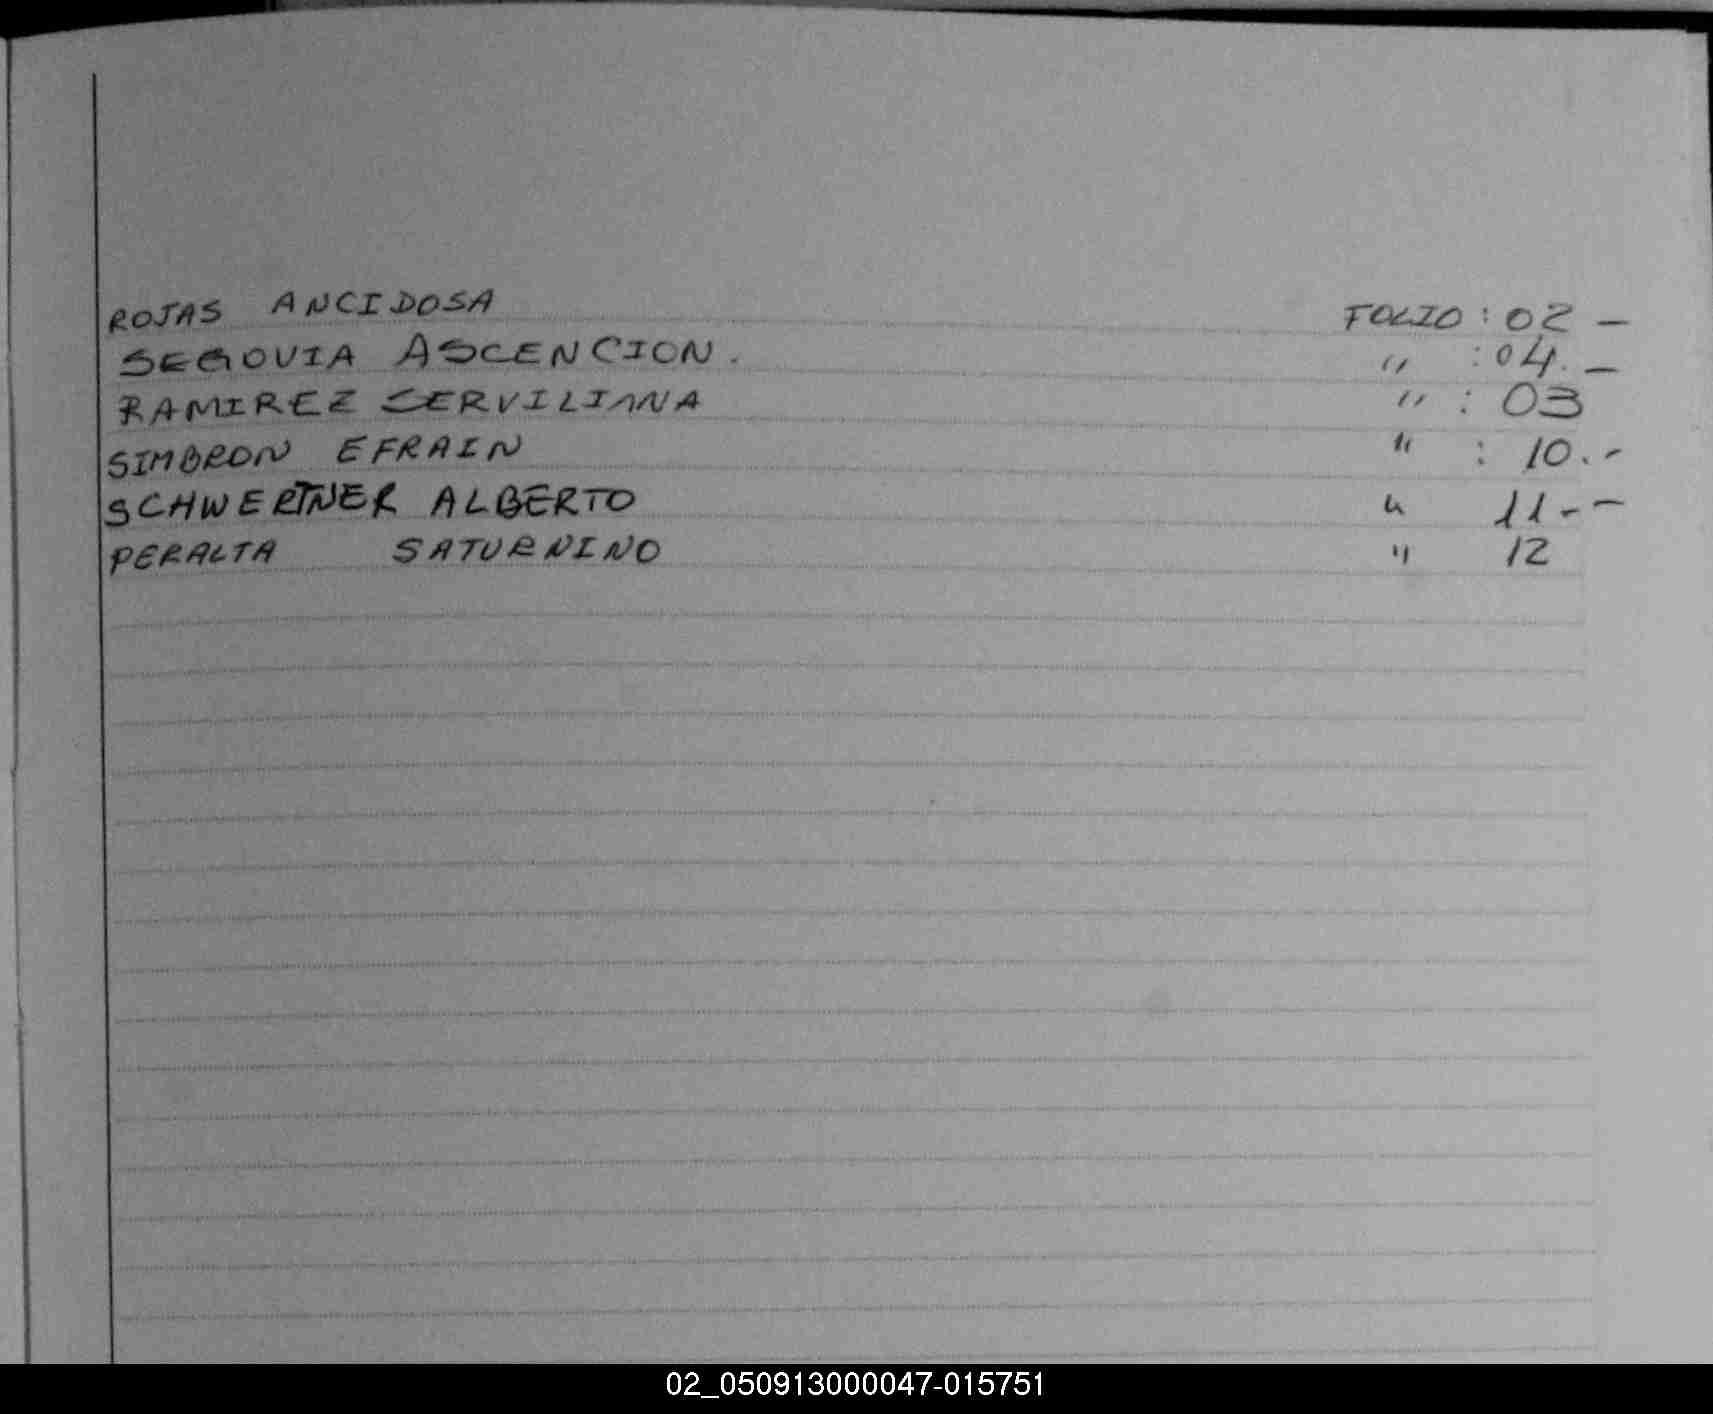 ROJAS ANCIDOSA FOLIO : 02 —
SEGOVIA ASCENCION. " : 04. —
RAMIREZ SERVILIANA " : 03
SIMBRON EFRAIN " : 10.-
SCHWERTNER ALBERTO " 11--
PERALTA SATURNINO " 12
02_050913000047-015751